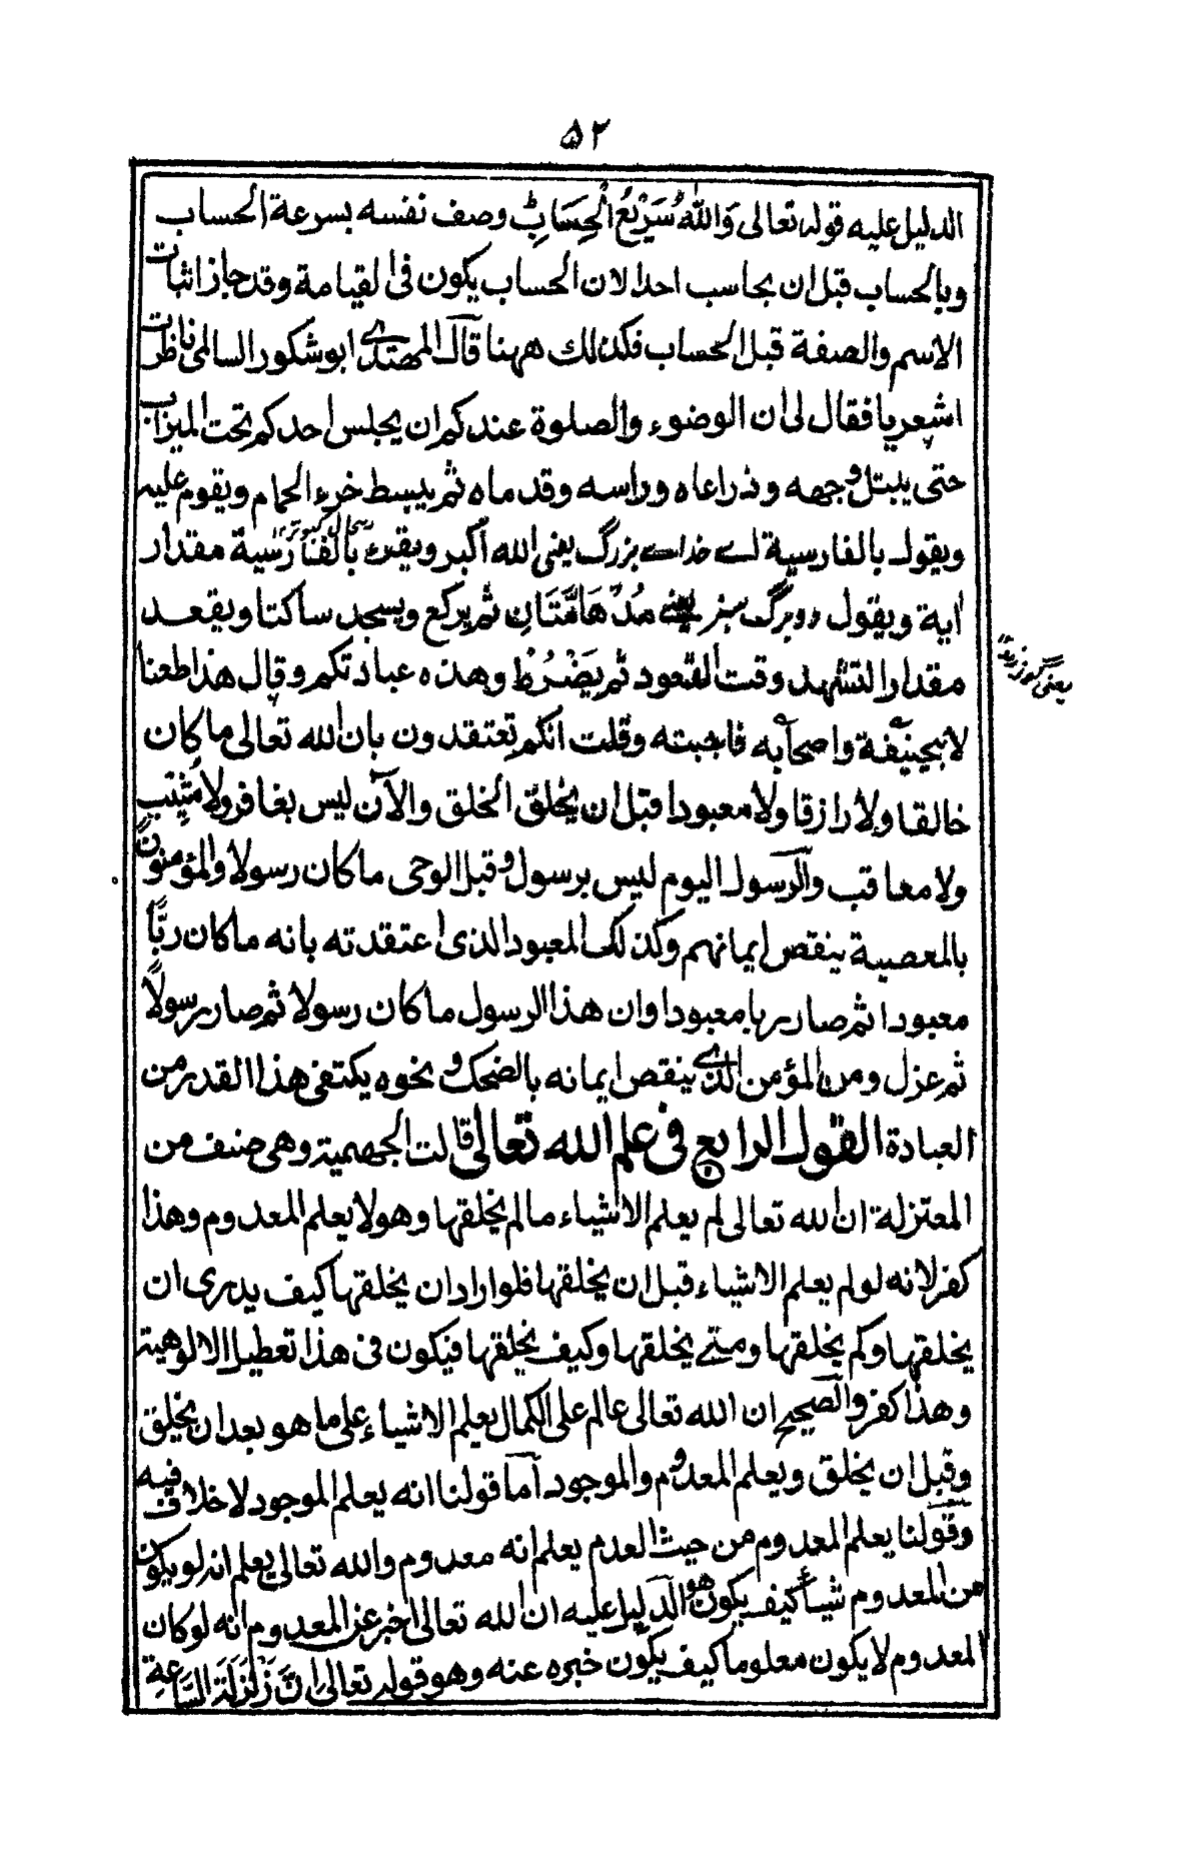 ۵۲
الدليل عليه قوله تعالى وَاللّٰهُ سَرِيْعُ الْحِسَابِ وصف نفسه بسرعة الحساب
وبالحساب قبل ان يحاسب احدا لان الحساب يكون في القيامة وقد جاز اثبات
الاسم والصفة قبل الحساب فكذلك ههنا قال المهتدي ابو شكور السالمي ناظرت
اشعريا فقال لى ان الوضوء والصلوة عندكم ان يجلس احدكم تحت الميزاب
حتى يبتل وجهه وذراعاه وراسه وقدماه ثم يبسط خرء الحمام ويقوم عليه
ويقول بالفارسية اے خداے بزرگ يعنى الله اكبر ويقرء بالفارسية مقدار
اية ويقول دو برگ سبز يعنے مُدْهَامَّتَانِ ثم يركع ويسجد ساكتا ويقعد
مقدار التشهد وقت القعود ثم يَضْرُط وهذه عبادتكم وقال هذا طعنا
لابيحنيفة واصحابه فاجبته وقلت انكم تعتقدون بان الله تعالى ما كان
خالقا ولا رازقا ولا معبودا قبل ان يخلق الخلق والآن ليس بغافر ولا مثيب
ولا معاقب والرسول اليوم ليس برسول وقبل الوحى ما كان رسولا والمؤمنون
بالمعصية ينقص ايمانهم وكذلك المعبود الذى اعتقدته بانه ما كان ربًّا
معبودا ثم صار ربا معبودا وان هذا الرسول ما كان رسولا ثم صار رسولًا
ثم عزل ومن المؤمن الذي ينقص ايمانه بالضحك ونحوه يكتفى هذا القدر من
العبادة القول الرابع فى علم الله تعالى قالت الجهمية وهى صنف من
المعتزلة ان الله تعالى لم يعلم الاشياء ما لم يخلقها وهو لا يعلم المعدوم وهذا
كفر لانه لو لم يعلم الاشياء قبل ان يخلقها فلو اراد ان يخلقها كيف يدرى ان
يخلقها وكم يخلقها ومتے يخلقها وكيف يخلقها فيكون فى هذا تعطيل الالوهية
وهذا كفر والصحيح ان الله تعالى عالم على الكمال يعلم الاشياء على ما هو بعد ان يخلق
وقبل ان يخلق ويعلم المعدوم والموجود اما قولنا انه يعلم الموجود لا خلاف فيه
وقولنا يعلم المعدوم من حيث العدم يعلم انه معدوم والله تعالى يعلم انه لو يكون
من المعدوم شيأ كيف يكون هو الدليل عليه ان الله تعالى اخبر عن المعدوم انه لو كان
المعدوم لا يكون معلوما كيف يكون خبره عنه وهو قوله تعالى اِنَّ زَلْزَلَةَ السَّاعَةِ